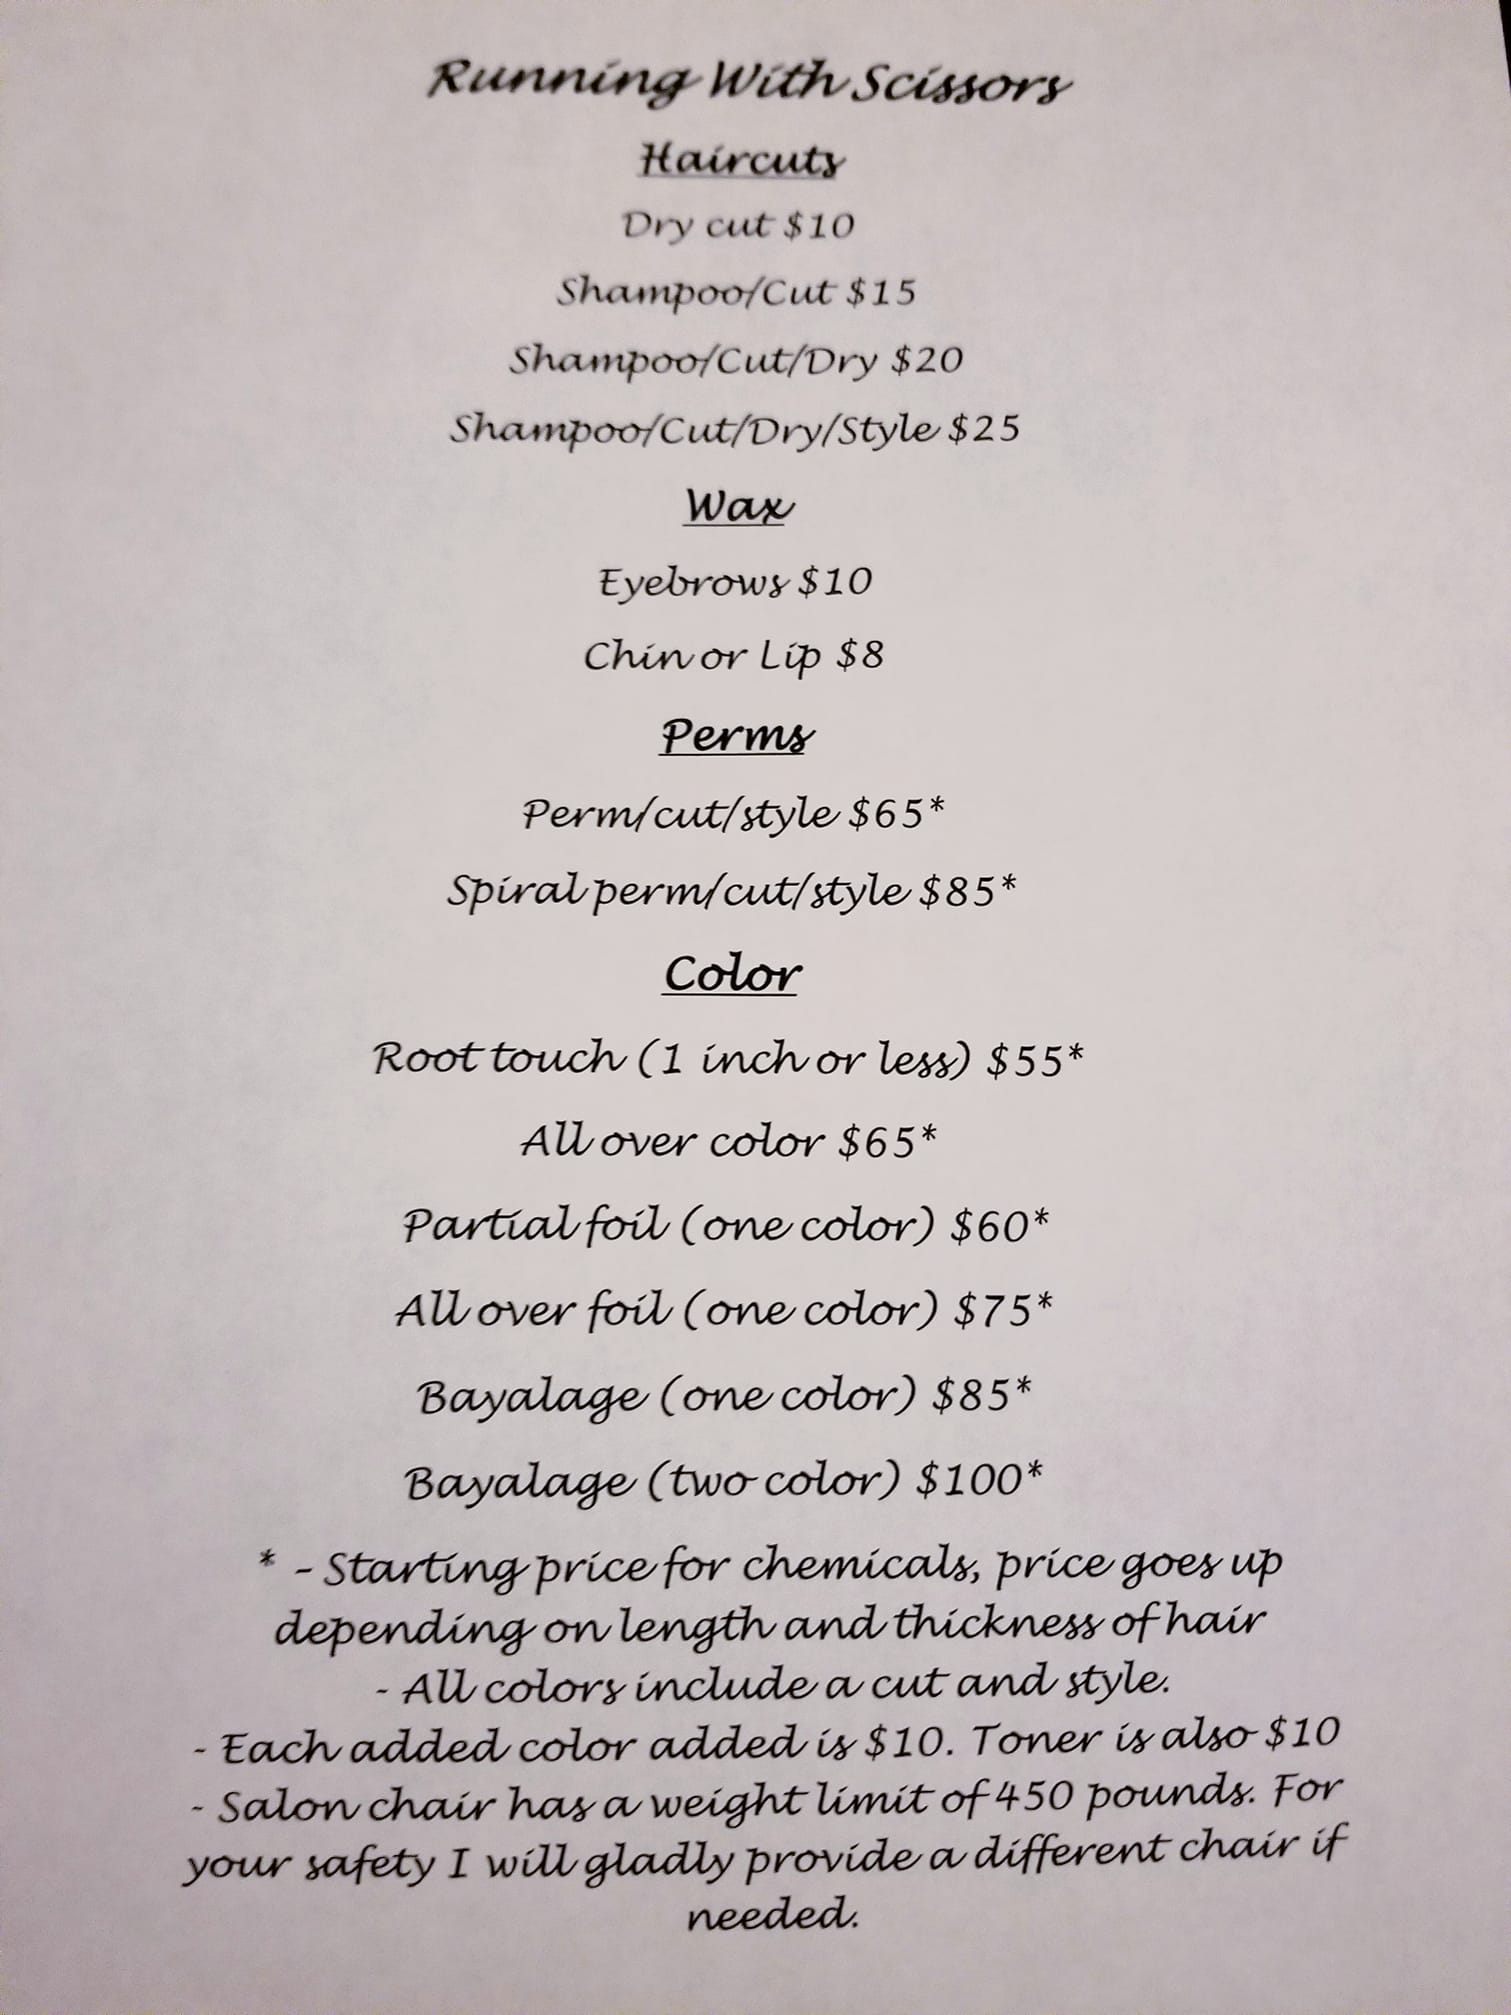 Running With Scissors
Haircuts
Dry cut $10
Shampoo/Cut $15
Shampoo/Cut/Dry $20
Shampoo/Cut/Dry/Style $25
Wax
Eyebrows $10
Chin or Lip $8
Perms
Perm/cut/style $65*
Spiral perm/cut/style $85*
Color
Root touch (1 inch or less) $55*
All over color $65*
Partial foil (one color) $60*
All over foil (one color) $75*
Bayalage (one color) $85*
Bayalage (two color) $100*
* – Starting price for chemicals, price goes up
depending on length and thickness of hair
- All colors include a cut and style.
- Each added color added is $10. Toner is also $10
- Salon chair has a weight limit of 450 pounds. For
your safety I will gladly provide a different chair if
needed.